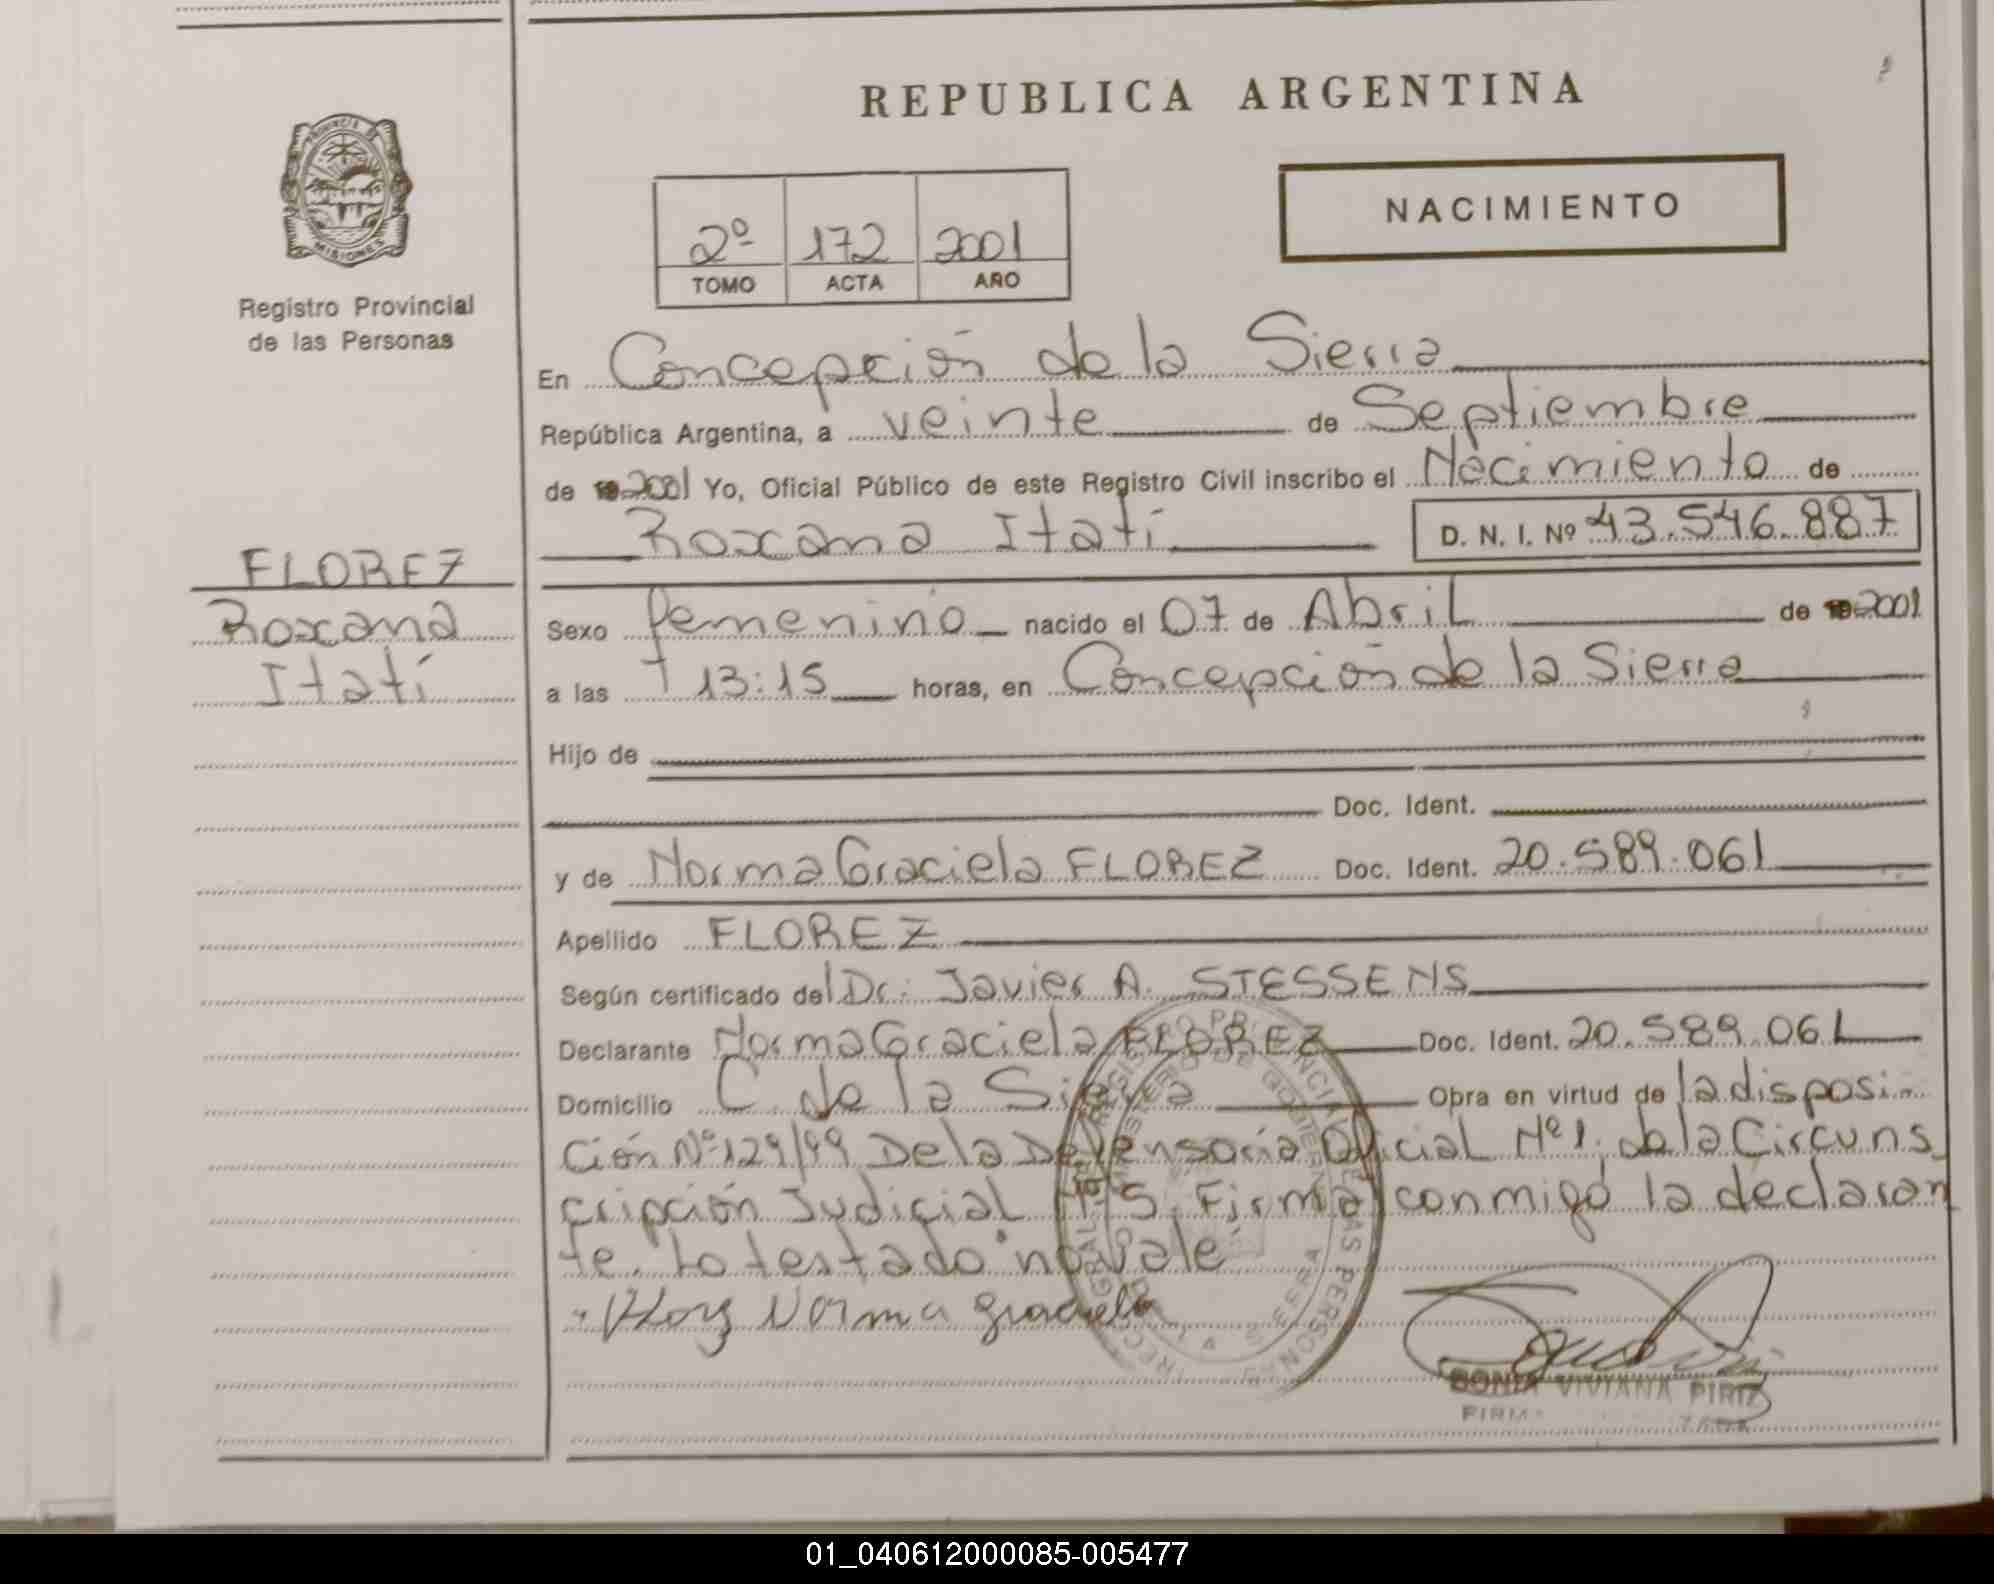 REPUBLICA ARGENTINA
PROVINCIA DE
MISIONES
Registro Provincial
de las Personas
NACIMIENTO
2º 172 2001
TOMO ACTA AÑO
En Concepción de la Sierra
República Argentina, a veinte de Septiembre
de 19 2001 Yo, Oficial Público de este Registro Civil inscribo el Nacimiento de
Roxana Itatí D. N. I. Nº 43.546.887
FLOREZ
Roxana
Itatí
Sexo femenino nacido el 07 de Abril de 19 2001
a las 13:15 horas, en Concepción de la Sierra
Hijo de
Doc. Ident.
y de Norma Graciela FLOREZ Doc. Ident. 20.589.061
Apellido FLOREZ
Según certificado del Dr. Javier A. STESSENS
Declarante Norma Graciela FLOREZ Doc. Ident. 20.589.061
Domicilio C. de la Sierra Obra en virtud de la disposi
ción Nº 129/99 De la Defensoría Oficial Nº 1. de la Circuns
cripción Judicial Firma conmigo la declaran
te. Lo testado no vale
Norma Graciela
SONIA VIVIANA PIRIZ
01_040612000085-005477